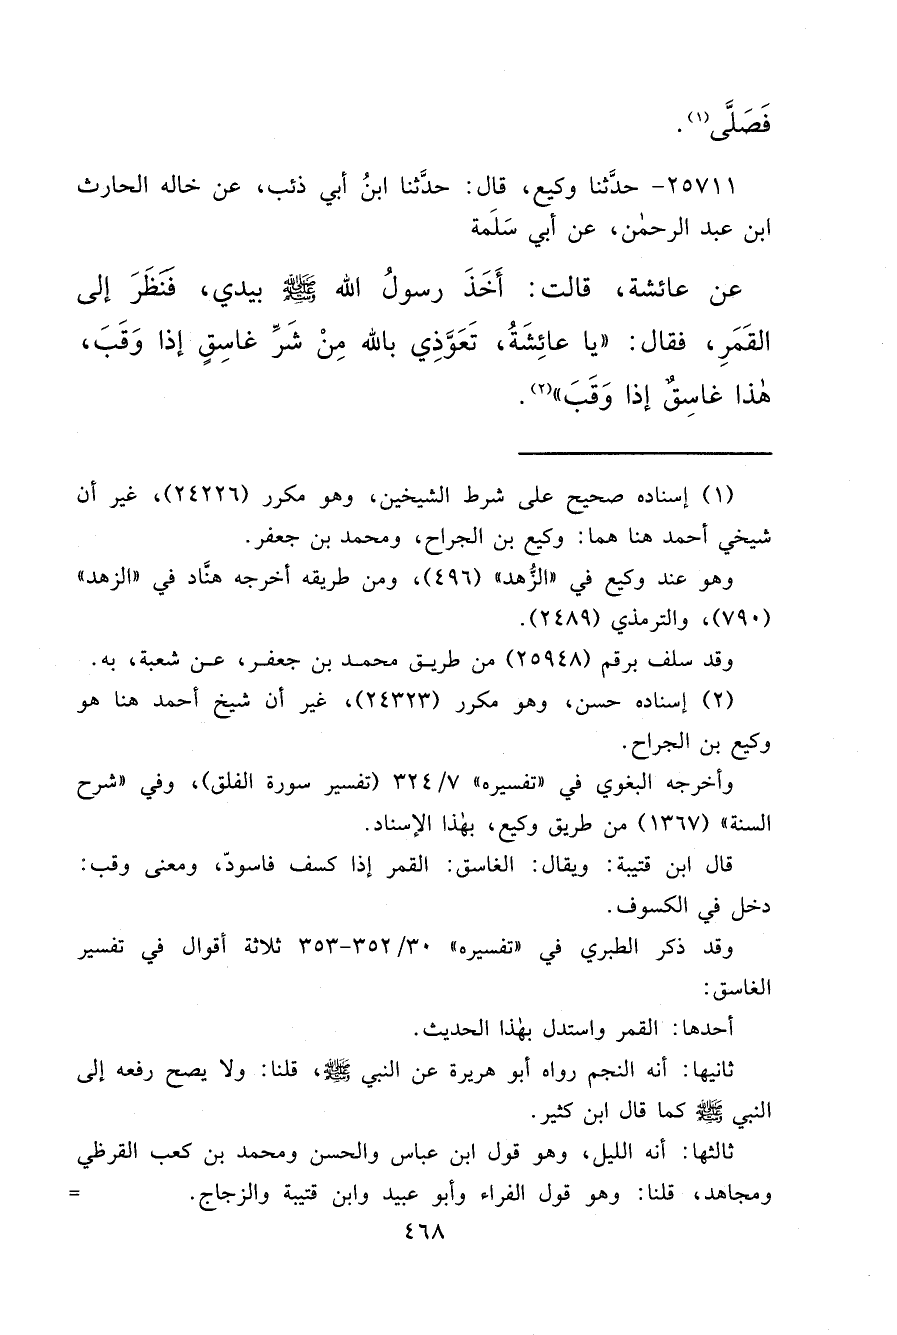 فَصَلَّى(١).
٢٥٧١١- حدَّثنا وكيع، قال: حدَّثنا ابنُ أبي ذئب، عن خاله الحارث
ابن عبد الرحمٰن، عن أبي سَلَمة
عن عائشة، قالت: أَخَذَ رسولُ الله ﷺ بيدي، فَنَظَرَ إلى
القَمَرِ، فقال: «يا عائِشَةُ، تَعَوَّذِي بالله مِنْ شَرِّ غاسِقٍ إذا وَقَبَ،
هٰذا غاسِقٌ إذا وَقَبَ»(٢).
(١) إسناده صحيح على شرط الشيخين، وهو مكرر (٢٤٢٢٦)، غير أن
شيخي أحمد هنا هما: وكيع بن الجراح، ومحمد بن جعفر.
وهو عند وكيع في «الزُّهد» (٤٩٦)، ومن طريقه أخرجه هنَّاد في «الزهد»
(٧٩٠)، والترمذي (٢٤٨٩).
وقد سلف برقم (٢٥٩٤٨) من طريق محمد بن جعفر، عن شعبة، به.
(٢) إسناده حسن، وهو مكرر (٢٤٣٢٣)، غير أن شيخ أحمد هنا هو
وكيع بن الجراح.
وأخرجه البغوي في «تفسيره» ٣٢٤/٧ (تفسير سورة الفلق)، وفي «شرح
السنة» (١٣٦٧) من طريق وكيع، بهٰذا الإسناد.
قال ابن قتيبة: ويقال: الغاسق: القمر إذا كسف فاسودّ، ومعنى وقب:
دخل في الكسوف.
وقد ذكر الطبري في «تفسيره» ٣٥٢/٣٠-٣٥٣ ثلاثة أقوال في تفسير
الغاسق:
أحدها: القمر واستدل بهٰذا الحديث.
ثانيها: أنه النجم رواه أبو هريرة عن النبي ﷺ، قلنا: ولا يصح رفعه إلى
النبي ﷺ كما قال ابن كثير.
ثالثها: أنه الليل، وهو قول ابن عباس والحسن ومحمد بن كعب القرظي
ومجاهد، قلنا: وهو قول الفراء وأبو عبيد وابن قتيبة والزجاج. =
٤٦٨